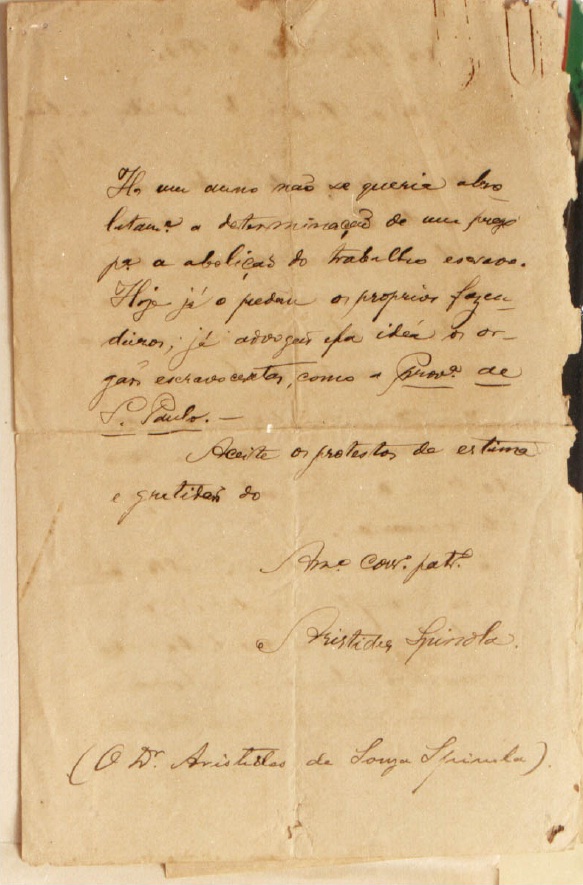 Ha um anno não se queria abso-
lutam.e a determinação de um praso
p.a a abolição do trabalho escravo.
Hoje já o pedem os proprios fazen-
deiros; já advogão essa idéa os or-
gãos escravocratas, como a Prov.a de
S. Paulo. —
Aceite os protestos de estima
e gratidão do
Am.o corr. patr.
Aristides Spinola.
(O Dr. Aristides de Souza Spinola).